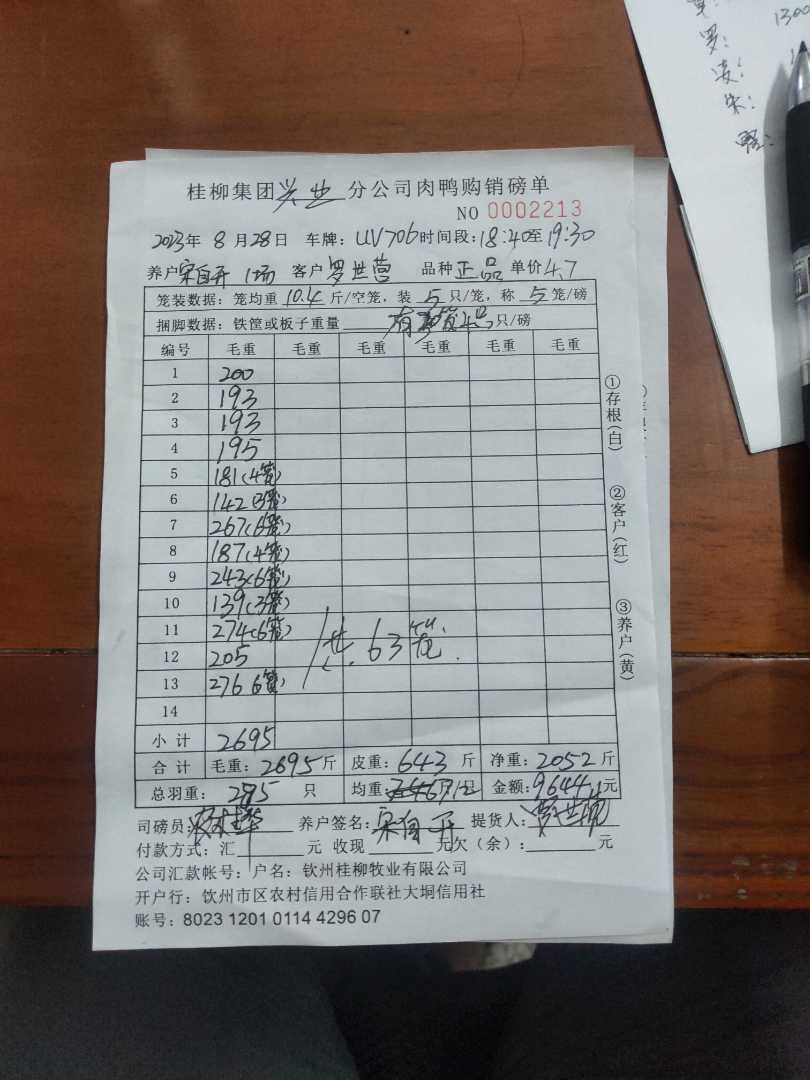 罗: 1300
朱:
桂柳集团兴业分公司肉鸭购销磅单
NO 0002213
2023年 8月28日 车牌: UV706 时间段: 18:40至19:30
养户宋自开 1场 客户罗世营 品种正品 单价4.7
笼装数据: 笼均重10.4斤/空笼, 装5只/笼, 称5笼/磅
捆脚数据: 铁筐或板子重量 只/磅
编号 毛重 毛重 毛重 毛重 毛重 毛重
1 200
2 193
3 193
4 195
5 181(4笼)
6 142(3笼)
7 267(6笼)
8 187(4笼)
9 243(6笼)
10 139(3笼)
11 274(6笼)
12 205
13 276 6笼)
共63笼.
14
小计 2695
合计 毛重: 2695斤 皮重: 643斤 净重: 2052斤
总羽重: 只 均重 金额: 9644元
司磅员: 养户签名: 宋自开 提货人:
付款方式: 汇 元 收现 元欠(余): 元
公司汇款帐号: 户名: 钦州桂柳牧业有限公司
开户行: 饮州市区农村信用合作联社大垌信用社
账号: 8023 1201 0114 4296 07
①存根(白) ②客户(红) ③养户(黄)